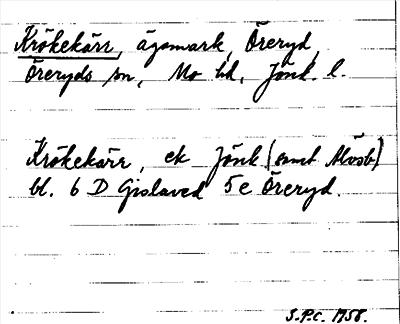 Krökekärr, ägomark, Öreryd,
Öreryds sn, Mo hd, Jönk. l.
Krökekärr, ek Jönk (samt Älvsb)
bl. 6 D Gislaved 5 e Öreryd.
S.P.C. 1958.